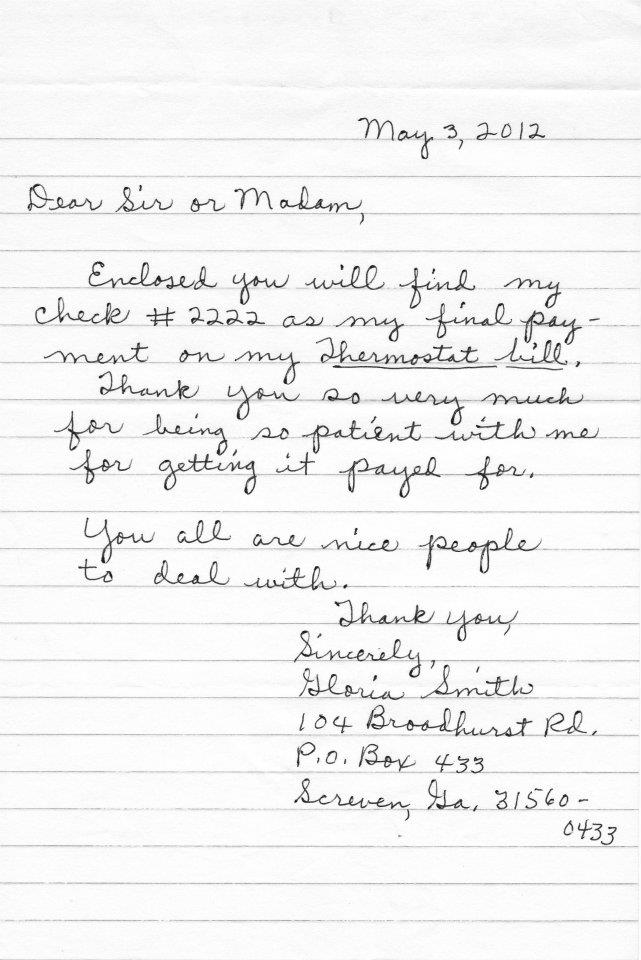 May 3, 2012
Dear Sir or Madam,
Enclosed you will find my
check # 2222 as my final pay-
ment on my Thermostat bill.
Thank you so very much
for being so patient with me
for getting it payed for.
You all are nice people
to deal with.
Thank you,
Sincerely,
Gloria Smith
104 Broadhurst Rd.
P.O. Box 433
Screven, Ga. 31560-
0433